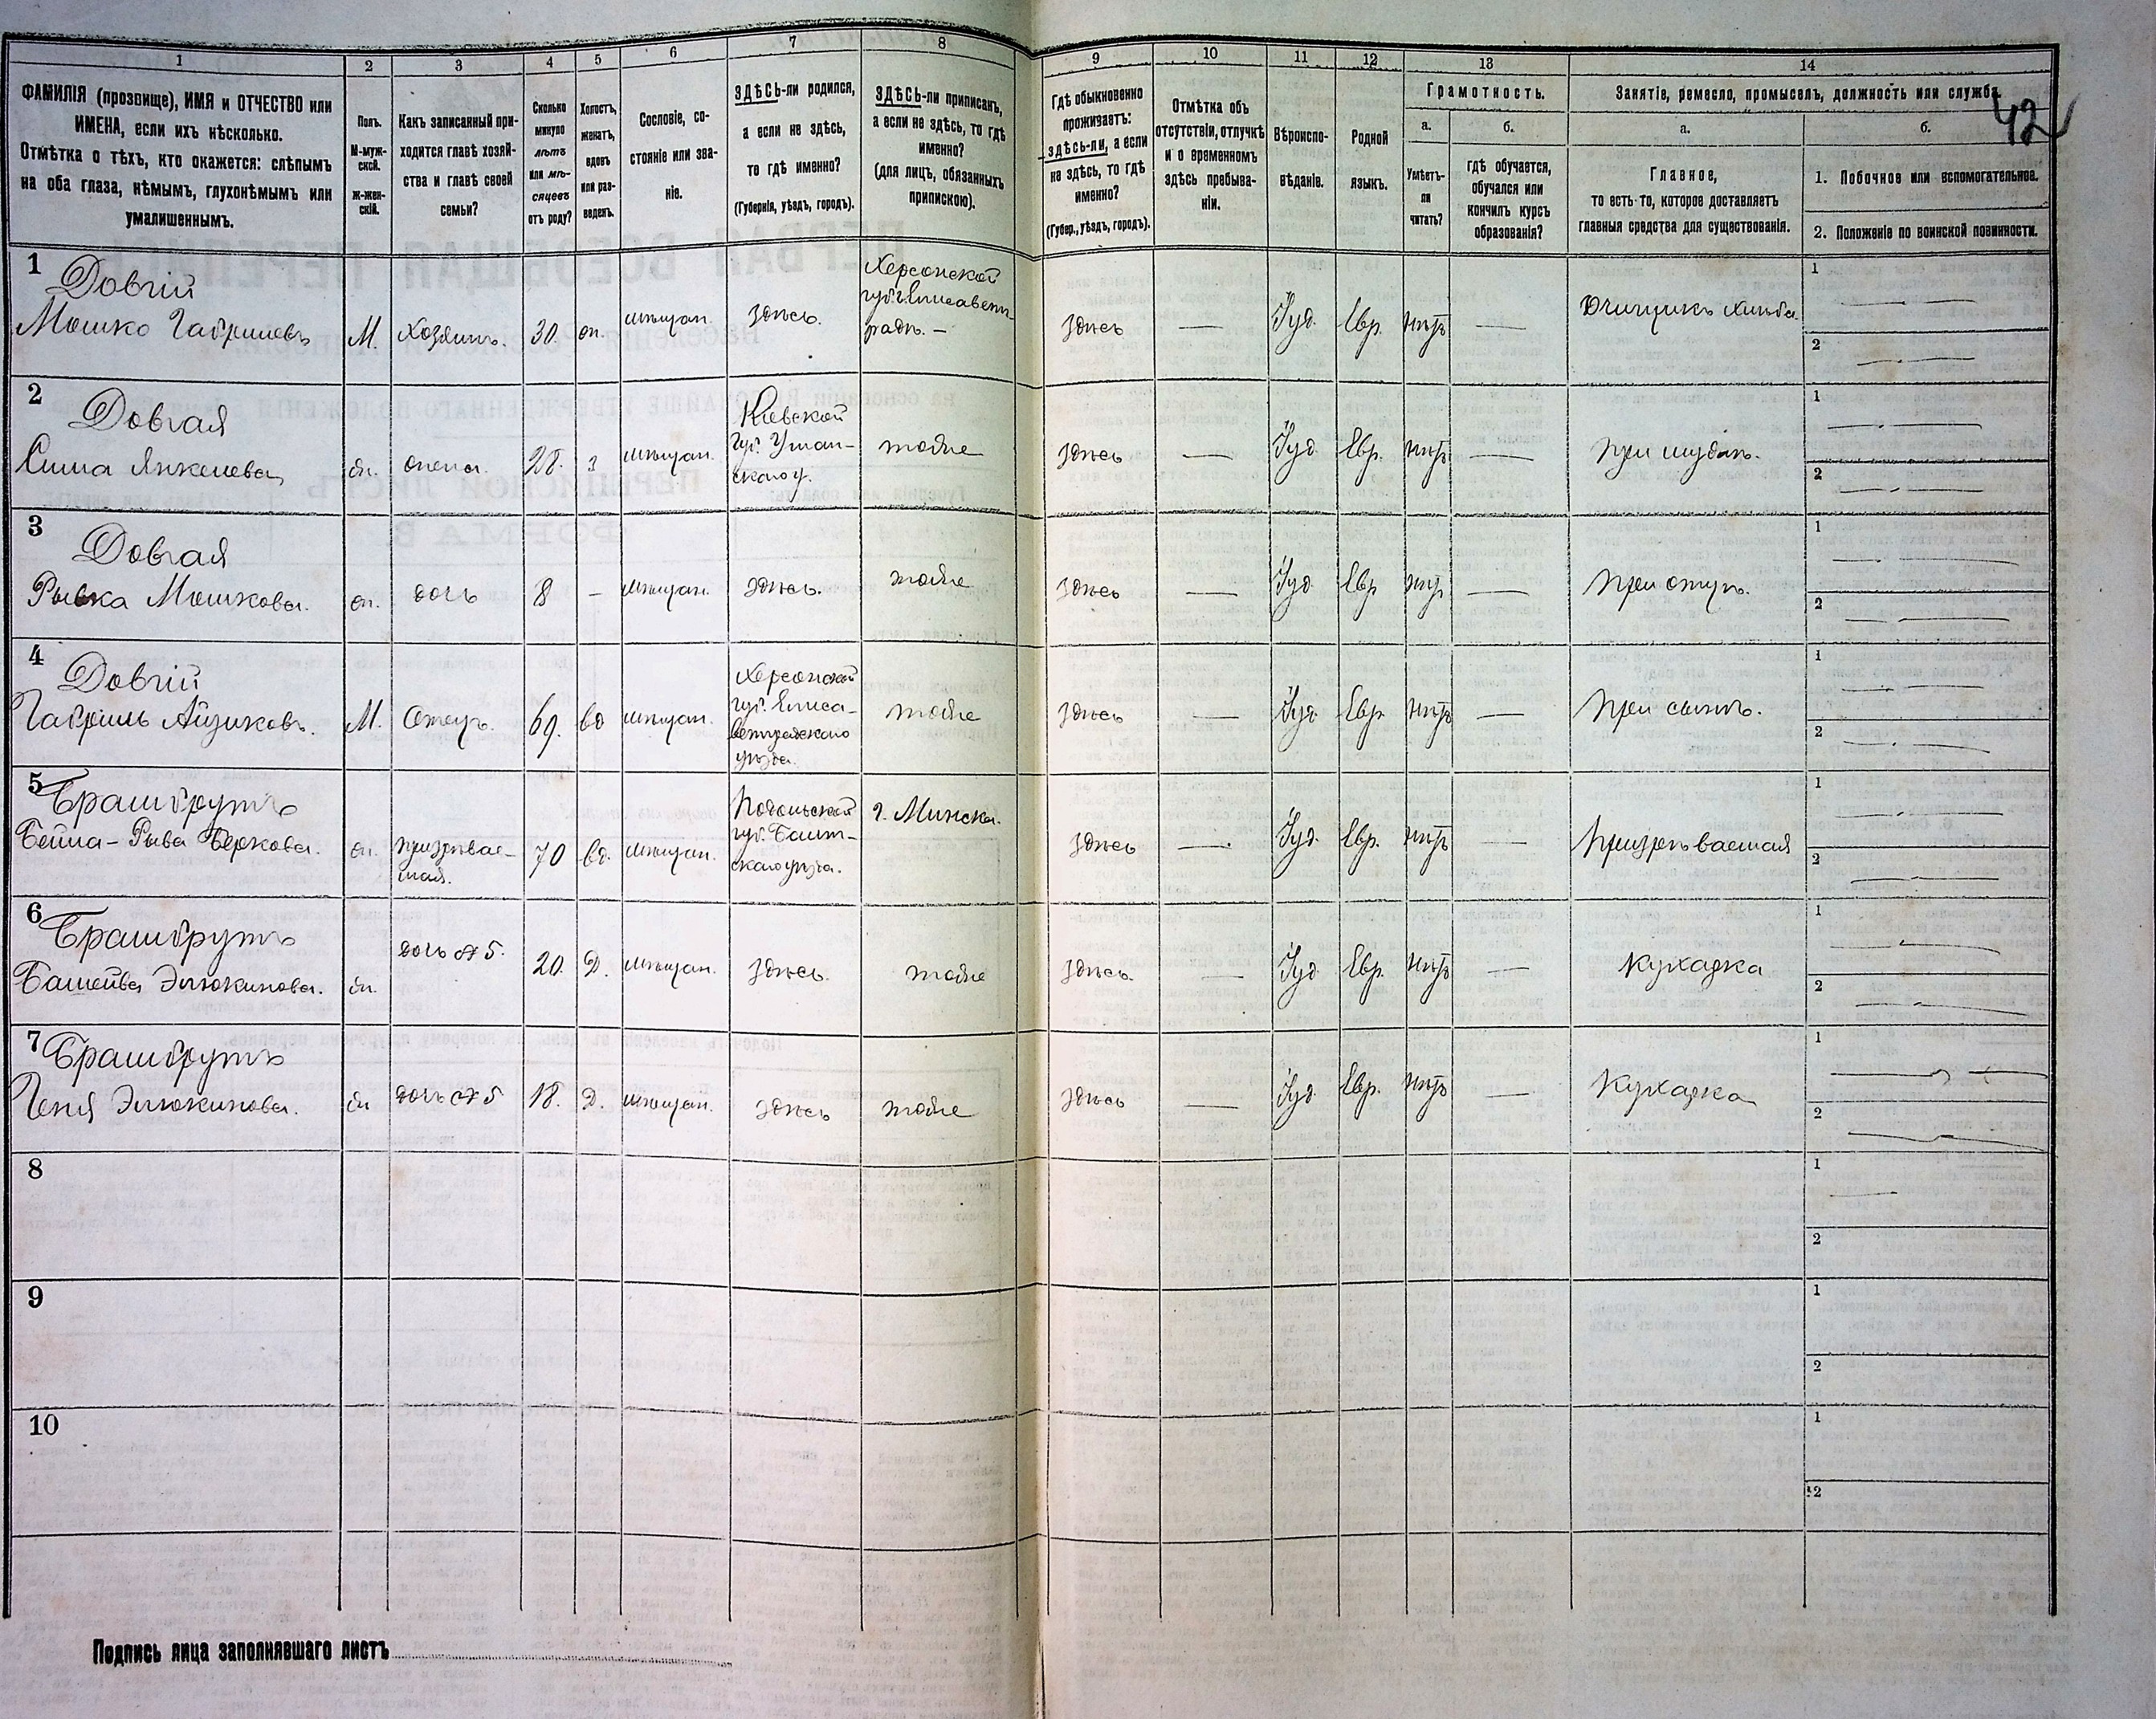 1 2 3 4 5 6 7 8 9 10 11 12 13 14
ФАМИЛІЯ (прозвище), ИМЯ и ОТЧЕСТВО или
ИМЕНА, если ихъ нѣсколько.
Отмѣтка о тѣхъ, кто окажется: слѣпымъ
на оба глаза, нѣмымъ, глухонѣмымъ или
умалишеннымъ.
Полъ.
М-муж-
ской.
ж-жен-
скій.
Какъ записанный при-
ходится главѣ хозяй-
ства и главѣ своей
семьи?
Сколько
минуло
лѣтъ
или мѣ-
сяцевъ
отъ роду?
Холостъ,
женатъ,
вдовъ
или раз-
веденъ.
Сословіе, со-
стояніе или зва-
ніе.
ЗДѢСЬ-ли родился,
а если не здѣсь,
то гдѣ именно?
(Губернія, уѣздъ, городъ).
ЗДѢСЬ-ли приписанъ,
а если не здѣсь, то гдѣ
именно?
(для лицъ, обязанныхъ
припискою).
Гдѣ обыкновенно
проживаетъ:
здѣсь-ли, а если
не здѣсь, то гдѣ
именно?
(Губер., уѣздъ, городъ).
Отмѣтка объ
отсутствіи, отлучкѣ
и о временномъ
здѣсь пребыва-
ніи.
Вѣроиспо-
вѣданіе.
Родной
языкъ.
Грамотность.
а.
Умѣетъ-
ли
читать?
б.
гдѣ обучается,
обучался или
кончилъ курсъ
образованія?
Занятіе, ремесло, промыселъ, должность или служба.
42
а.
Главное,
то есть то, которое доставляетъ
главныя средства для существованія.
б.
1. Побочное или вспомогательное.
2. Положеніе по воинской повинности.
1 Довгій
Мошко Габриилевъ М. Хозяинъ. 30. мѣщан. Здѣсь.
Херсонской
губ. Елисавет-
радъ. —
здѣсь — Іуд. Евр. нѣтъ —
1
2
2 Довгая
Янкелева жена. 28. з мѣщан.
Кіевской
губ. Уман-
скаго у.
тоже здѣсь — Іуд. Евр. нѣтъ — при мужѣ.
1
2
3 Довгая
Рывка Мошкова. дочь 8 — мѣщан. здѣсь. тоже здѣсь — Іуд. Евр нѣтъ — при отцѣ.
1
2
4 Довгій
Габріиль Айзиковъ. М. Отецъ. 69. вд мѣщан.
Херсонской
губ. Елиса-
ветградскаго
уѣзда.
тоже здѣсь — Іуд. Евр. нѣтъ — при сынѣ.
1
2
5 Брашбрутъ
Бейла-Рыва Беркова.
призрѣвае-
мая.
70 вд. мѣщан.
Подольской
губ. Балт-
скаго уѣзда.
г. Минска. здѣсь — Іуд. Евр. нѣтъ — призрѣваемая
1
2
6 Брашбрутъ
Башейва Элюкимова. дочь 5. 20. Д. мѣщан. здѣсь. тоже здѣсь. — Іуд. Евр. нѣтъ — Кухарка
1
2
7 Брашбрутъ
Геня Элюкимова. дочь 5 18. Д. мѣщан. здѣсь тоже здѣсь — Іуд. Евр. нѣтъ — Кухарка
1
2
8
1
2
9
1
2
10
1
2
Подпись лица заполнявшаго листъ